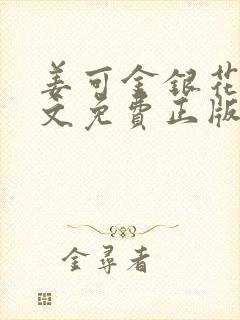 姜可金银花
文免費正版
金尋者